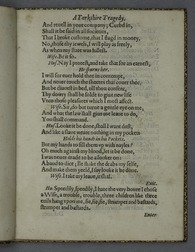 A Yorkshire Tragedy.
And revell in your company; Curbd in,
Shall it be said in all societies,
That I broke custome, that I flagd in money,
No, those thy jewels, I will play as freely,
As when my state was fullest.
Wife. Be it so.
Hus. Nay I protest, and take that for an earnest,
He spurns her.
I will for ever hold thee in contempt,
And never touch the sheets that cover thee,
But be divorst in bed, till thou consent,
Thy dowry shall be sold to give new life
Unto those pleasures which I most affect.
Wife. Sir, do but turne a gentle eye on me,
And what the law shall give me leave to do,
You shall command.
Hus. Looke it be done, shall I want dust,
And like a slave weare nothing in my pockets
Holds his hands in his Pockets.
But my hands to fill them up with nayles?
Oh much against my blood, let it be done,
I was never made to be a looker on:
A bawd to dice; Ile shake the drabs my selfe,
And make them yeeld, I say looke it be done.
Wife. I take my leave, it shall.
Exit.
Hu. Speedily, speedily, I hate the very houre I chose
a Wife, a trouble, trouble, three children like three
evils hang upon me, fie, fie, fie, strumpet and bastards,
strumpet and bastards.
Enter